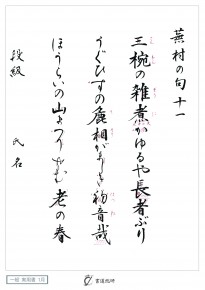 蕪村の句 十一
三椀の雑煮かゆるや長者ぶり
うぐひすの麁相がましき初音哉
ほうらいの山まつりせむ老の春
段級 氏名